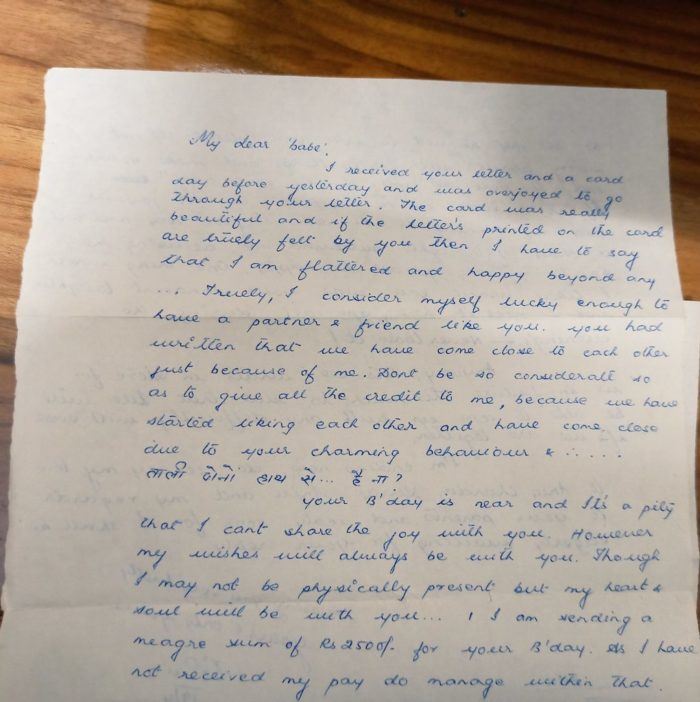 My dear 'babe',
I received your letter and a card
day before yesterday and was overjoyed to go
through your letter. The card was really
beautiful and if the letter's printed on the card
are truely felt by you then I have to say
that I am flattered and happy beyond any
... Truely, I consider myself lucky enough to
have a partner & friend like you. you had
written that we have come close to each other
just because of me. Dont be so considerate so
as to give all the credit to me, because we have
started liking each other and have come close
due to your charming behaviour & .....
ताली दोनों हाथ से... है ना?
your B'day is near and Its a pity
that I cant share the joy with you. However
my wishes will always be with you. Though
I may not be physically present but my heart &
soul will be with you... I am sending a
meagre sum of Rs 2500/- for your B'day. As I have
not received my pay do manage within that.